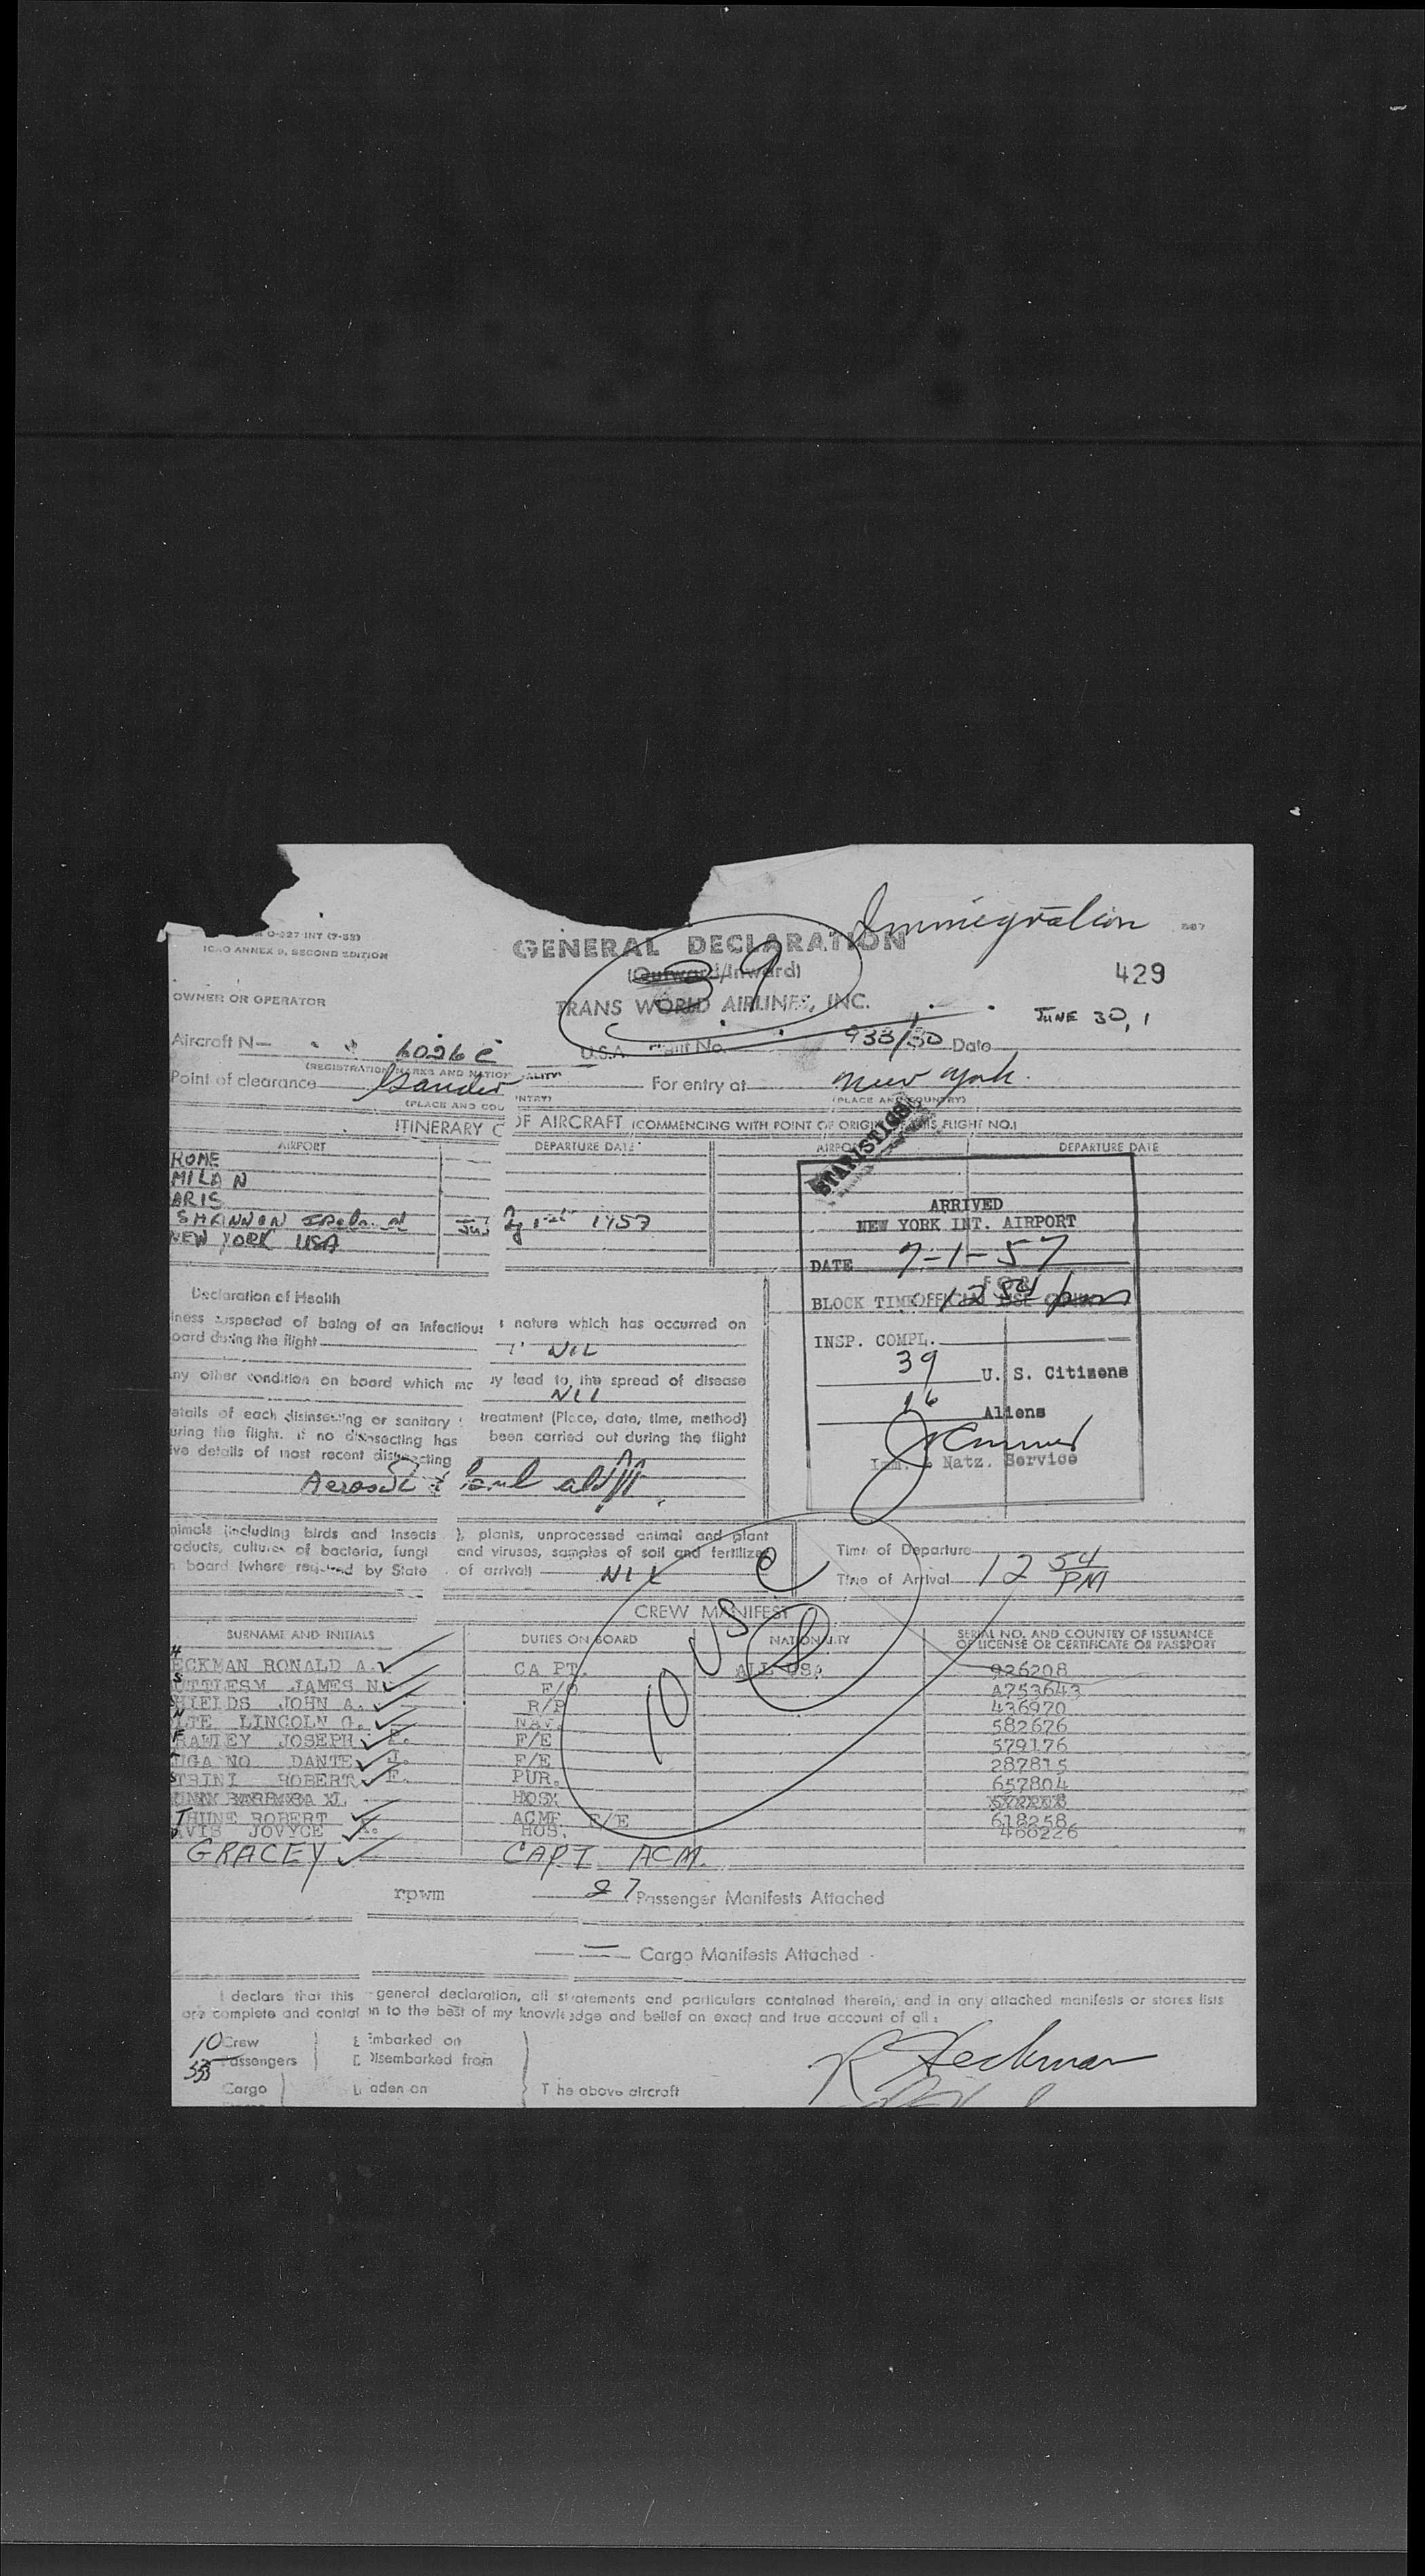 Immigration
0-027 INT (7-53)
ICAO ANNEX 9, SECOND EDITION
GENERAL DECLARATION
(Outward/Inward)
429
OWNER OR OPERATOR
TRANS WORLD AIRLINES, INC.
JUNE 30, 1
Aircraft N— 6026 C U.S.A. Flight No. 933/30 Date
(REGISTRATION MARKS AND NATIONALITY)
Point of clearance Gander For entry at New York
(PLACE AND COUNTRY) (PLACE AND COUNTRY)
ITINERARY OF AIRCRAFT (COMMENCING WITH POINT OF ORIGIN THIS FLIGHT NO.)
AIRPORT DEPARTURE DATE AIRPORT DEPARTURE DATE
STATISTICS
ROME
MILAN
ARIS
SHANNON 1957
NEW YORK USA
ARRIVED
NEW YORK INT. AIRPORT
DATE 7-1-57
BLOCK TIME 12 54 pm
INSP. COMPL.
39 U. S. Citizens
16 Aliens
Imm. & Natz. Service
Declaration of Health
lness suspected of being of an infectious nature which has occurred on
oard during the flight
NIL
ny other condition on board which may lead to the spread of disease
NIL
etails of each disinsecting or sanitary treatment (Place, date, time, method)
uring the flight. If no disinsecting has been carried out during the flight
ive details of most recent disinsecting
Aerosol
nimals (including birds and insects), plants, unprocessed animal and plant
roducts, cultures of bacteria, fungi and viruses, samples of soil and fertilizer
n board (where required by State of arrival) NIL
Time of Departure
Time of Arrival 12 54 PM
CREW MANIFEST
10 USC
SURNAME AND INITIALS DUTIES ON BOARD NATIONALITY SERIAL NO. AND COUNTRY OF ISSUANCE
OF LICENSE OR CERTIFICATE OR PASSPORT
HECKMAN RONALD A. CAPT. ALL USA 926208
SUTTLESM JAMES N. F/O A753643
SHIELDS JOHN A. R/P 436970
NLTE LINCOLN G. NAV. 582676
FRAWLEY JOSEPH F. F/E 579176
UGA NO DANTE J. F/E 287815
STRINI ROBERT F. PUR. 657804
HOS
THUNE ROBERT ACMF F/E 618258
DAVIS JOVYCE K. HOS. 466226
GRACEY CAPT ACM.
rpwm 27 Passenger Manifests Attached
— Cargo Manifests Attached
I declare that this general declaration, all statements and particulars contained therein, and in any attached manifests or stores lists
are complete and contain to the best of my knowledge and belief an exact and true account of all:
10 Crew Embarked on
Passengers Disembarked from
Cargo Laden on The above aircraft
R Heckman